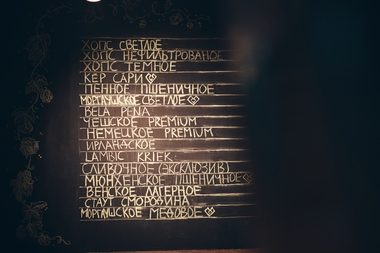 ХОПС СВЕТЛОЕ
ХОПС НЕФИЛЬТРОВАНОЕ
ХОПС ТЕМНОЕ
КЕР САРИ
ПЕННОЕ ПШЕНИЧНОЕ
МОРГАУШСКОЕ СВЕТЛОЕ
BELA PENA
ЧЕШСКОЕ PREMIUM
НЕМЕЦКОЕ PREMIUM
ИРЛАНДСКОЕ
LAMBIC KRIEK
СЛИВОЧНОЕ (ЭКСКЛЮЗИВ)
МЮНХЕНСКОЕ ПШЕНИЧНОЕ
ВЕНСКОЕ ЛАГЕРНОЕ
СТАУТ СМОРОДИНА
МОРГАУШСКОЕ МЕДОВОЕ